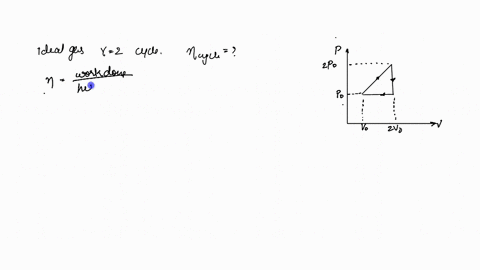 ideal gas γ=2 cycle. ηcycle = ?
η = work done
he
P
2P0
P0
V0 2V0 V